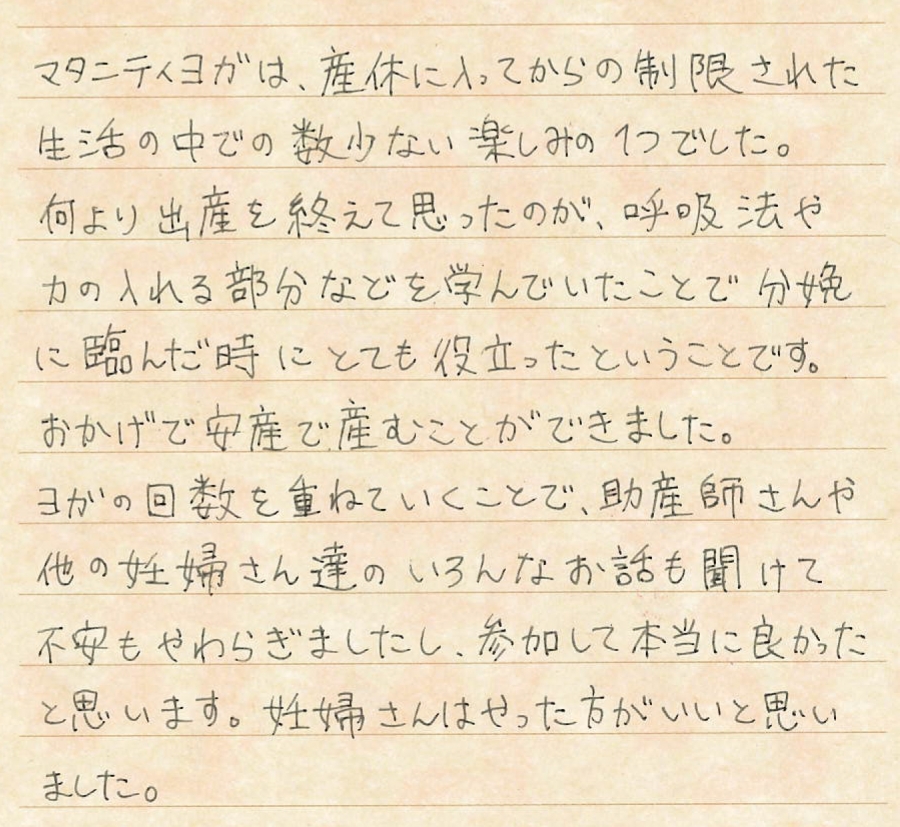 マタニティヨガは、産休に入ってからの制限された
生活の中での数少ない楽しみの1つでした。
何より出産を終えて思ったのが、呼吸法や
力の入れる部分などを学んでいたことで分娩
に臨んだ時にとても役立ったということです。
おかげで安産で産むことができました。
ヨガの回数を重ねていくことで、助産師さんや
他の妊婦さん達のいろんなお話も聞けて
不安もやわらぎましたし、参加して本当に良かった
と思います。妊婦さんはやった方がいいと思い
ました。